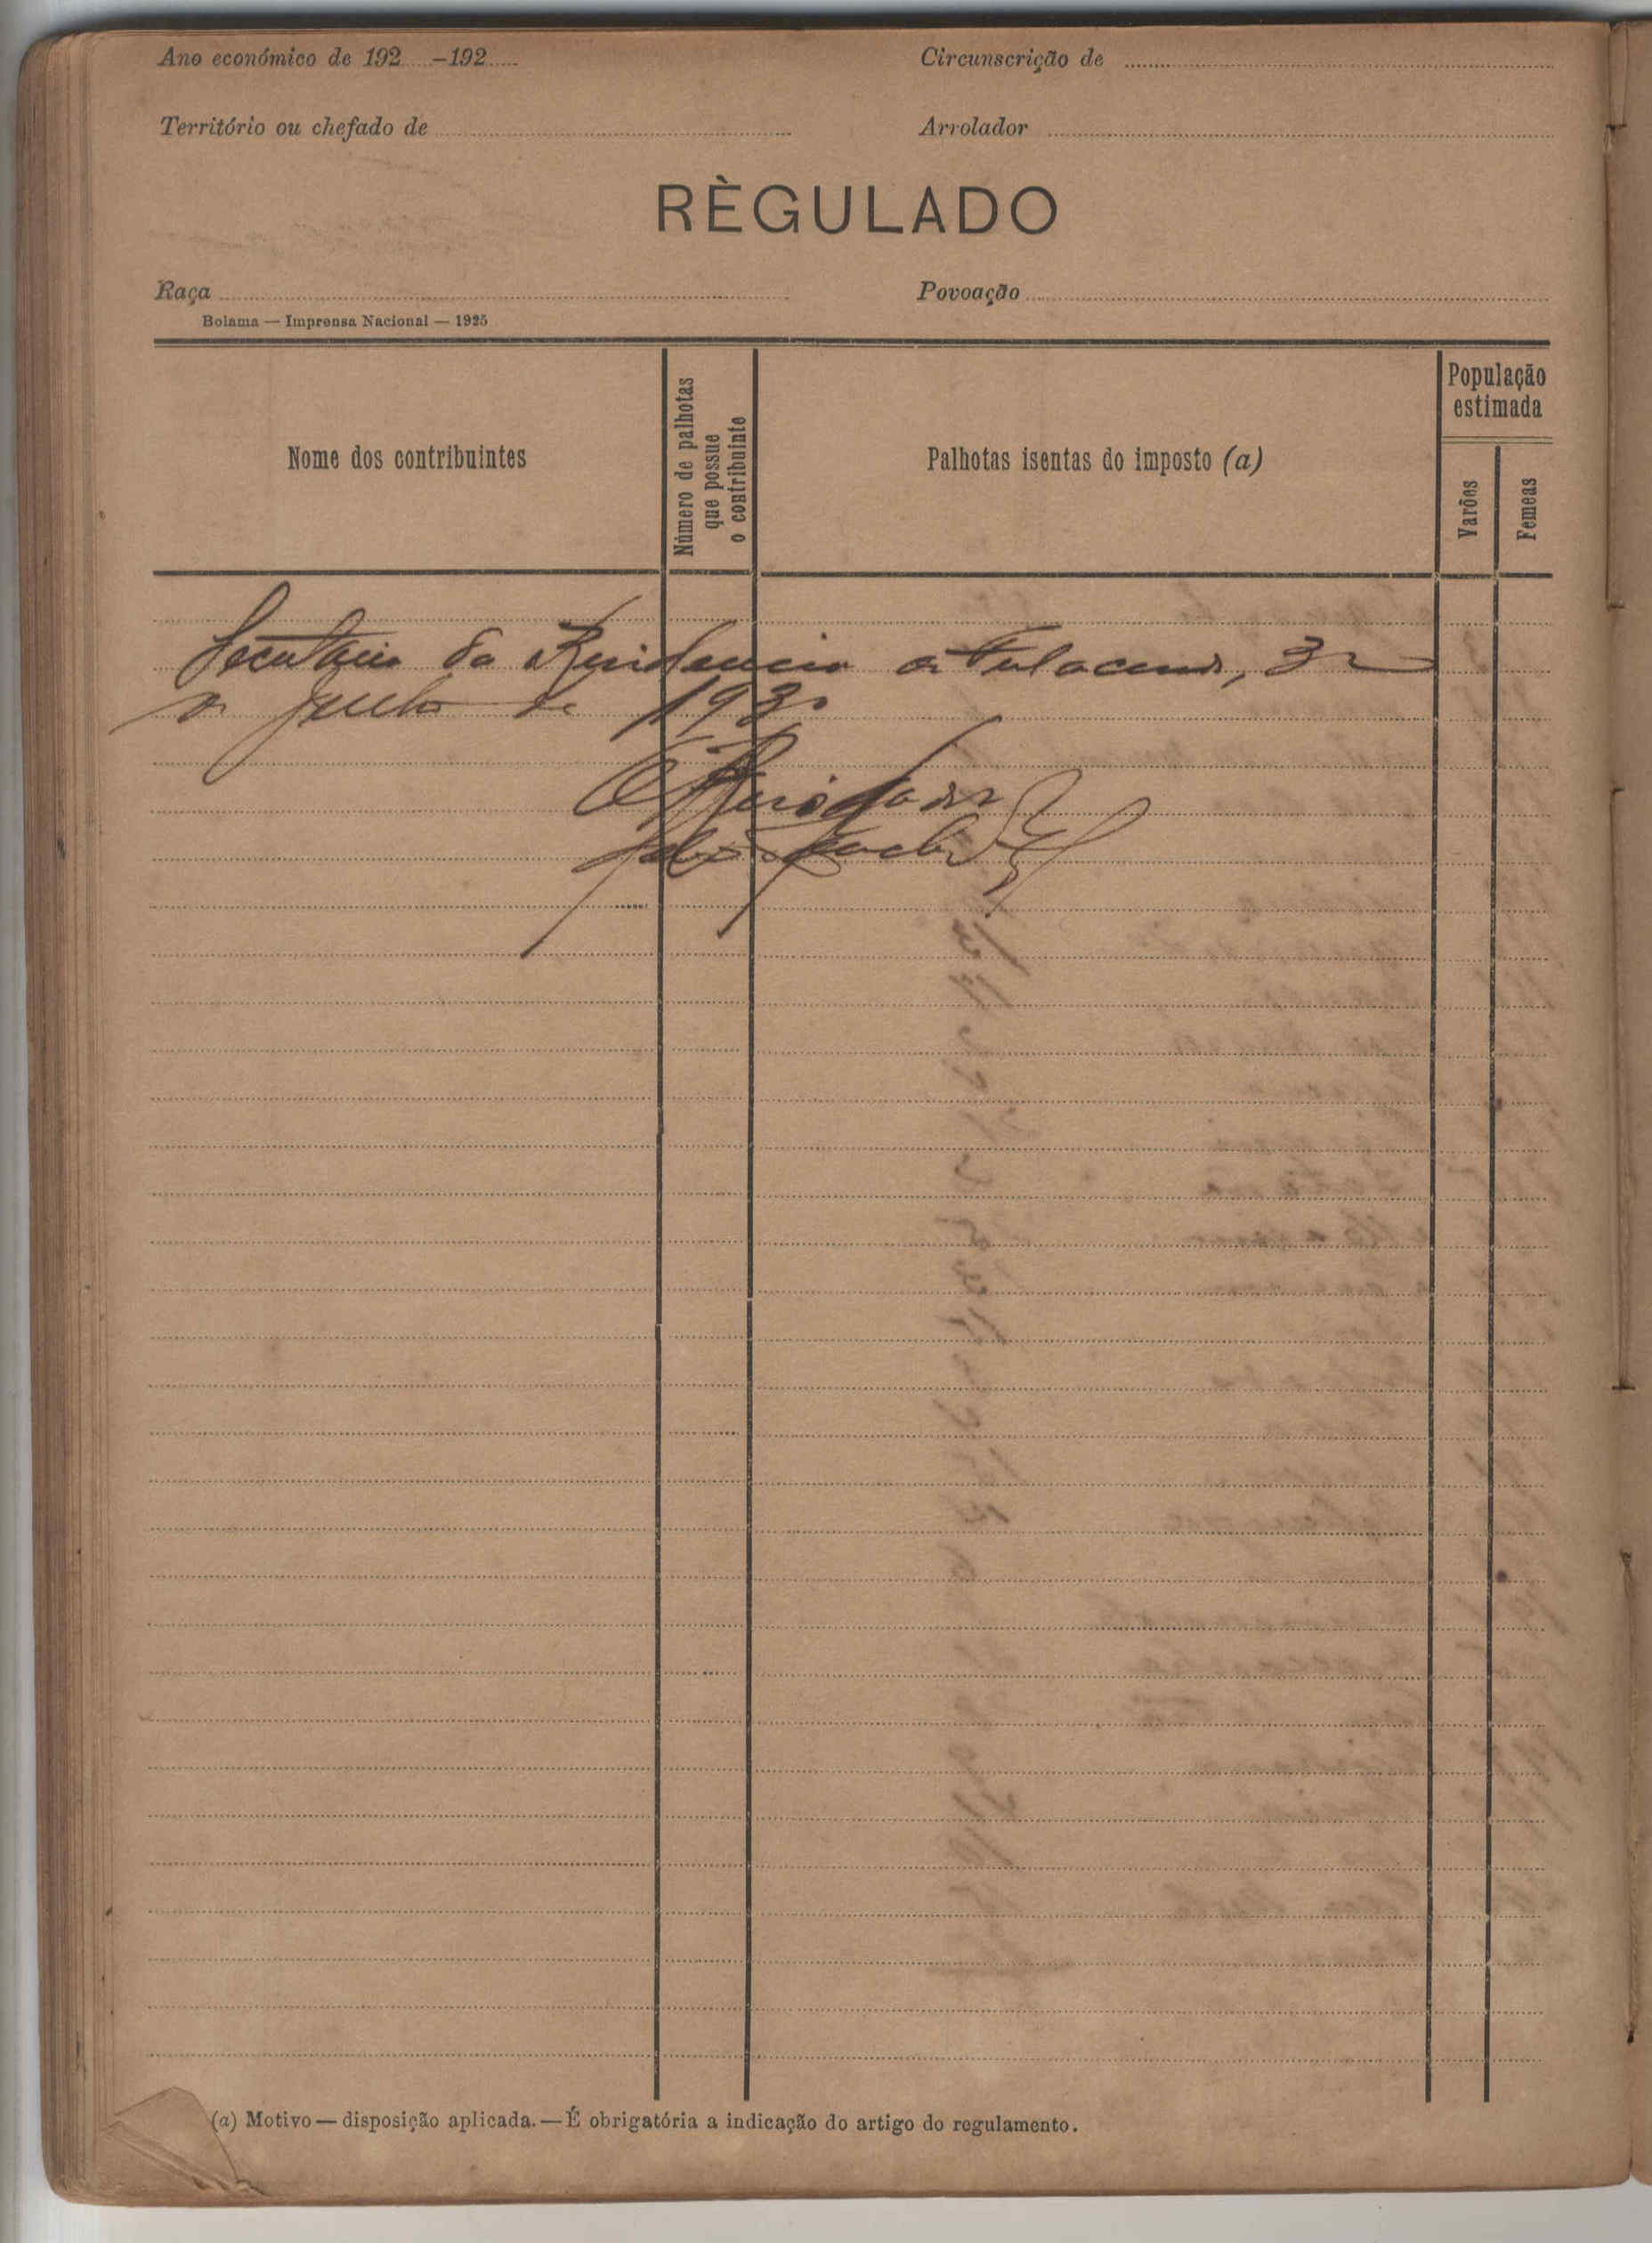 Ano económico de 192.....-192.....
Circunscrição de
Território ou chefado de
Arrolador
RÈGULADO
Raça
Povoação
Bolama — Imprensa Nacional — 1925
Nome dos contribuintes
Número de palhotas que possue o contribuinte
Palhotas isentas do imposto (a)
População estimada
Varões
Femeas
da Residencia Fulacunda, 30
de 1930
O Residente
(a) Motivo — disposição aplicada. — É obrigatória a indicação do artigo do regulamento.